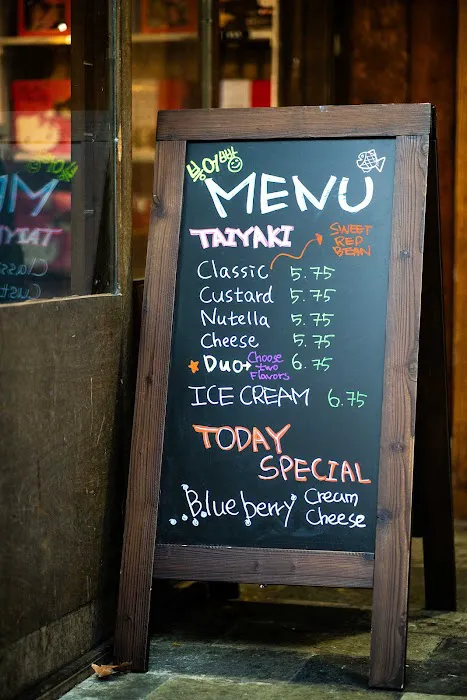 붕어빵
MENU
TAIYAKI
SWEET
RED
BEAN
Classic 5.75
Custard 5.75
Nutella 5.75
Cheese 5.75
Duo Choose two Flavors 6.75
ICE CREAM 6.75
TODAY
SPECIAL
Blueberry Cream
Cheese